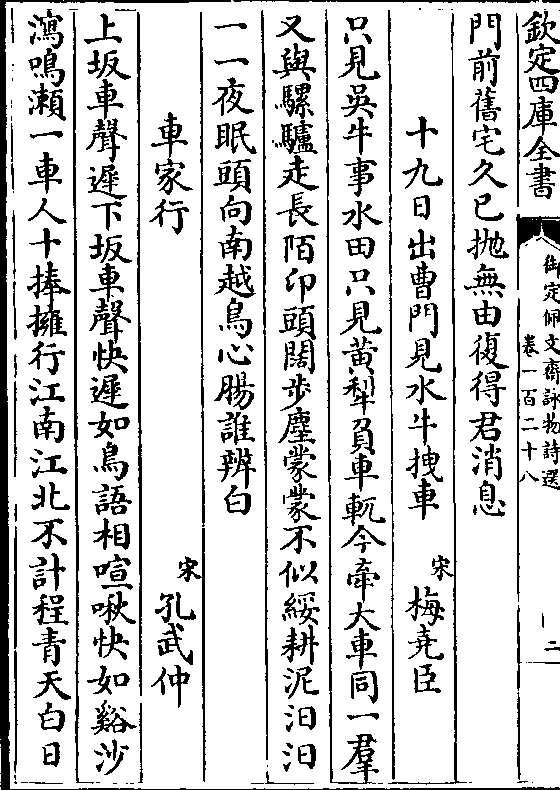 欽定四庫全書
御定佩文齋詠物詩選
卷一百二十八
二
門前舊宅久已抛無由復得君消息
十九日出曹門見水牛拽車 宋 梅堯臣
只見吳牛事水田只見黃犂負車軛今牽大車同一羣
又與騾驢走長陌卬頭闊步塵蒙蒙不似綏耕泥汨汨
一一夜眠頭向南越鳥心腸誰辨白
車家行 宋 孔武仲
上坂車聲遲下坂車聲快遲如鳥語相喧啾快如谿沙
瀉鳴瀨一車人十捧擁行江南江北不計程青天白日